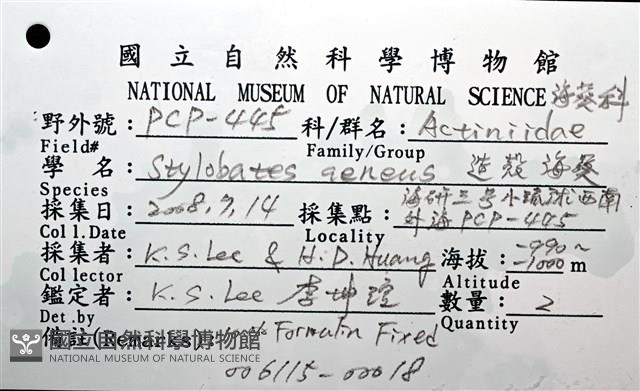 國立自然科學博物館
NATIONAL MUSEUM OF NATURAL SCIENCE 海葵科
野外號：PCP-445 科/群名：Actiniidae
Field# Family/Group
學名：Stylobates aeneus 造殼海葵
Species
採集日：2008.7.14 採集點：海研三号小琉球西南外海PCP-445
Coll.Date Locality
採集者：K.S.Lee & H.D.Huang 海拔：-990~-1000 m
Collector Altitude
鑑定者：K.S.Lee 李坤瑄 數量：2
Det.by Quantity
備註(Remarks): Formalin Fixed
國立自然科學博物館
NATIONAL MUSEUM OF NATURAL SCIENCE
006115-00018